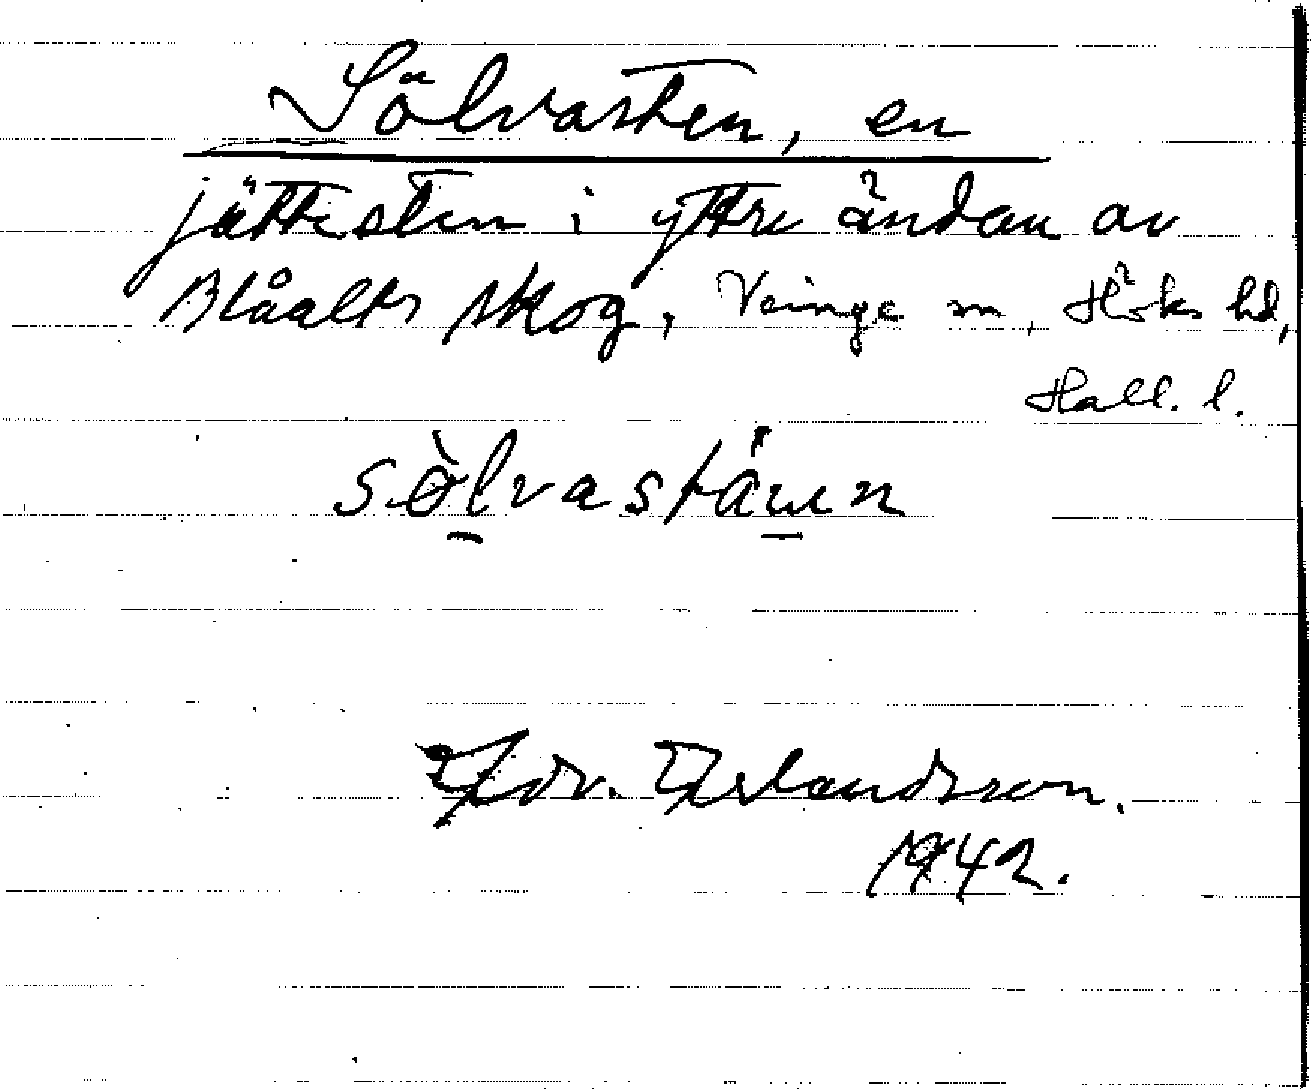 Sölvasten, en
jättesten i yttre ändan av
Blåalts skog, Veinge sn, Höks hd,
Hall. l.
sòlvastáɯn
Edv. Erlandsson.
1942.